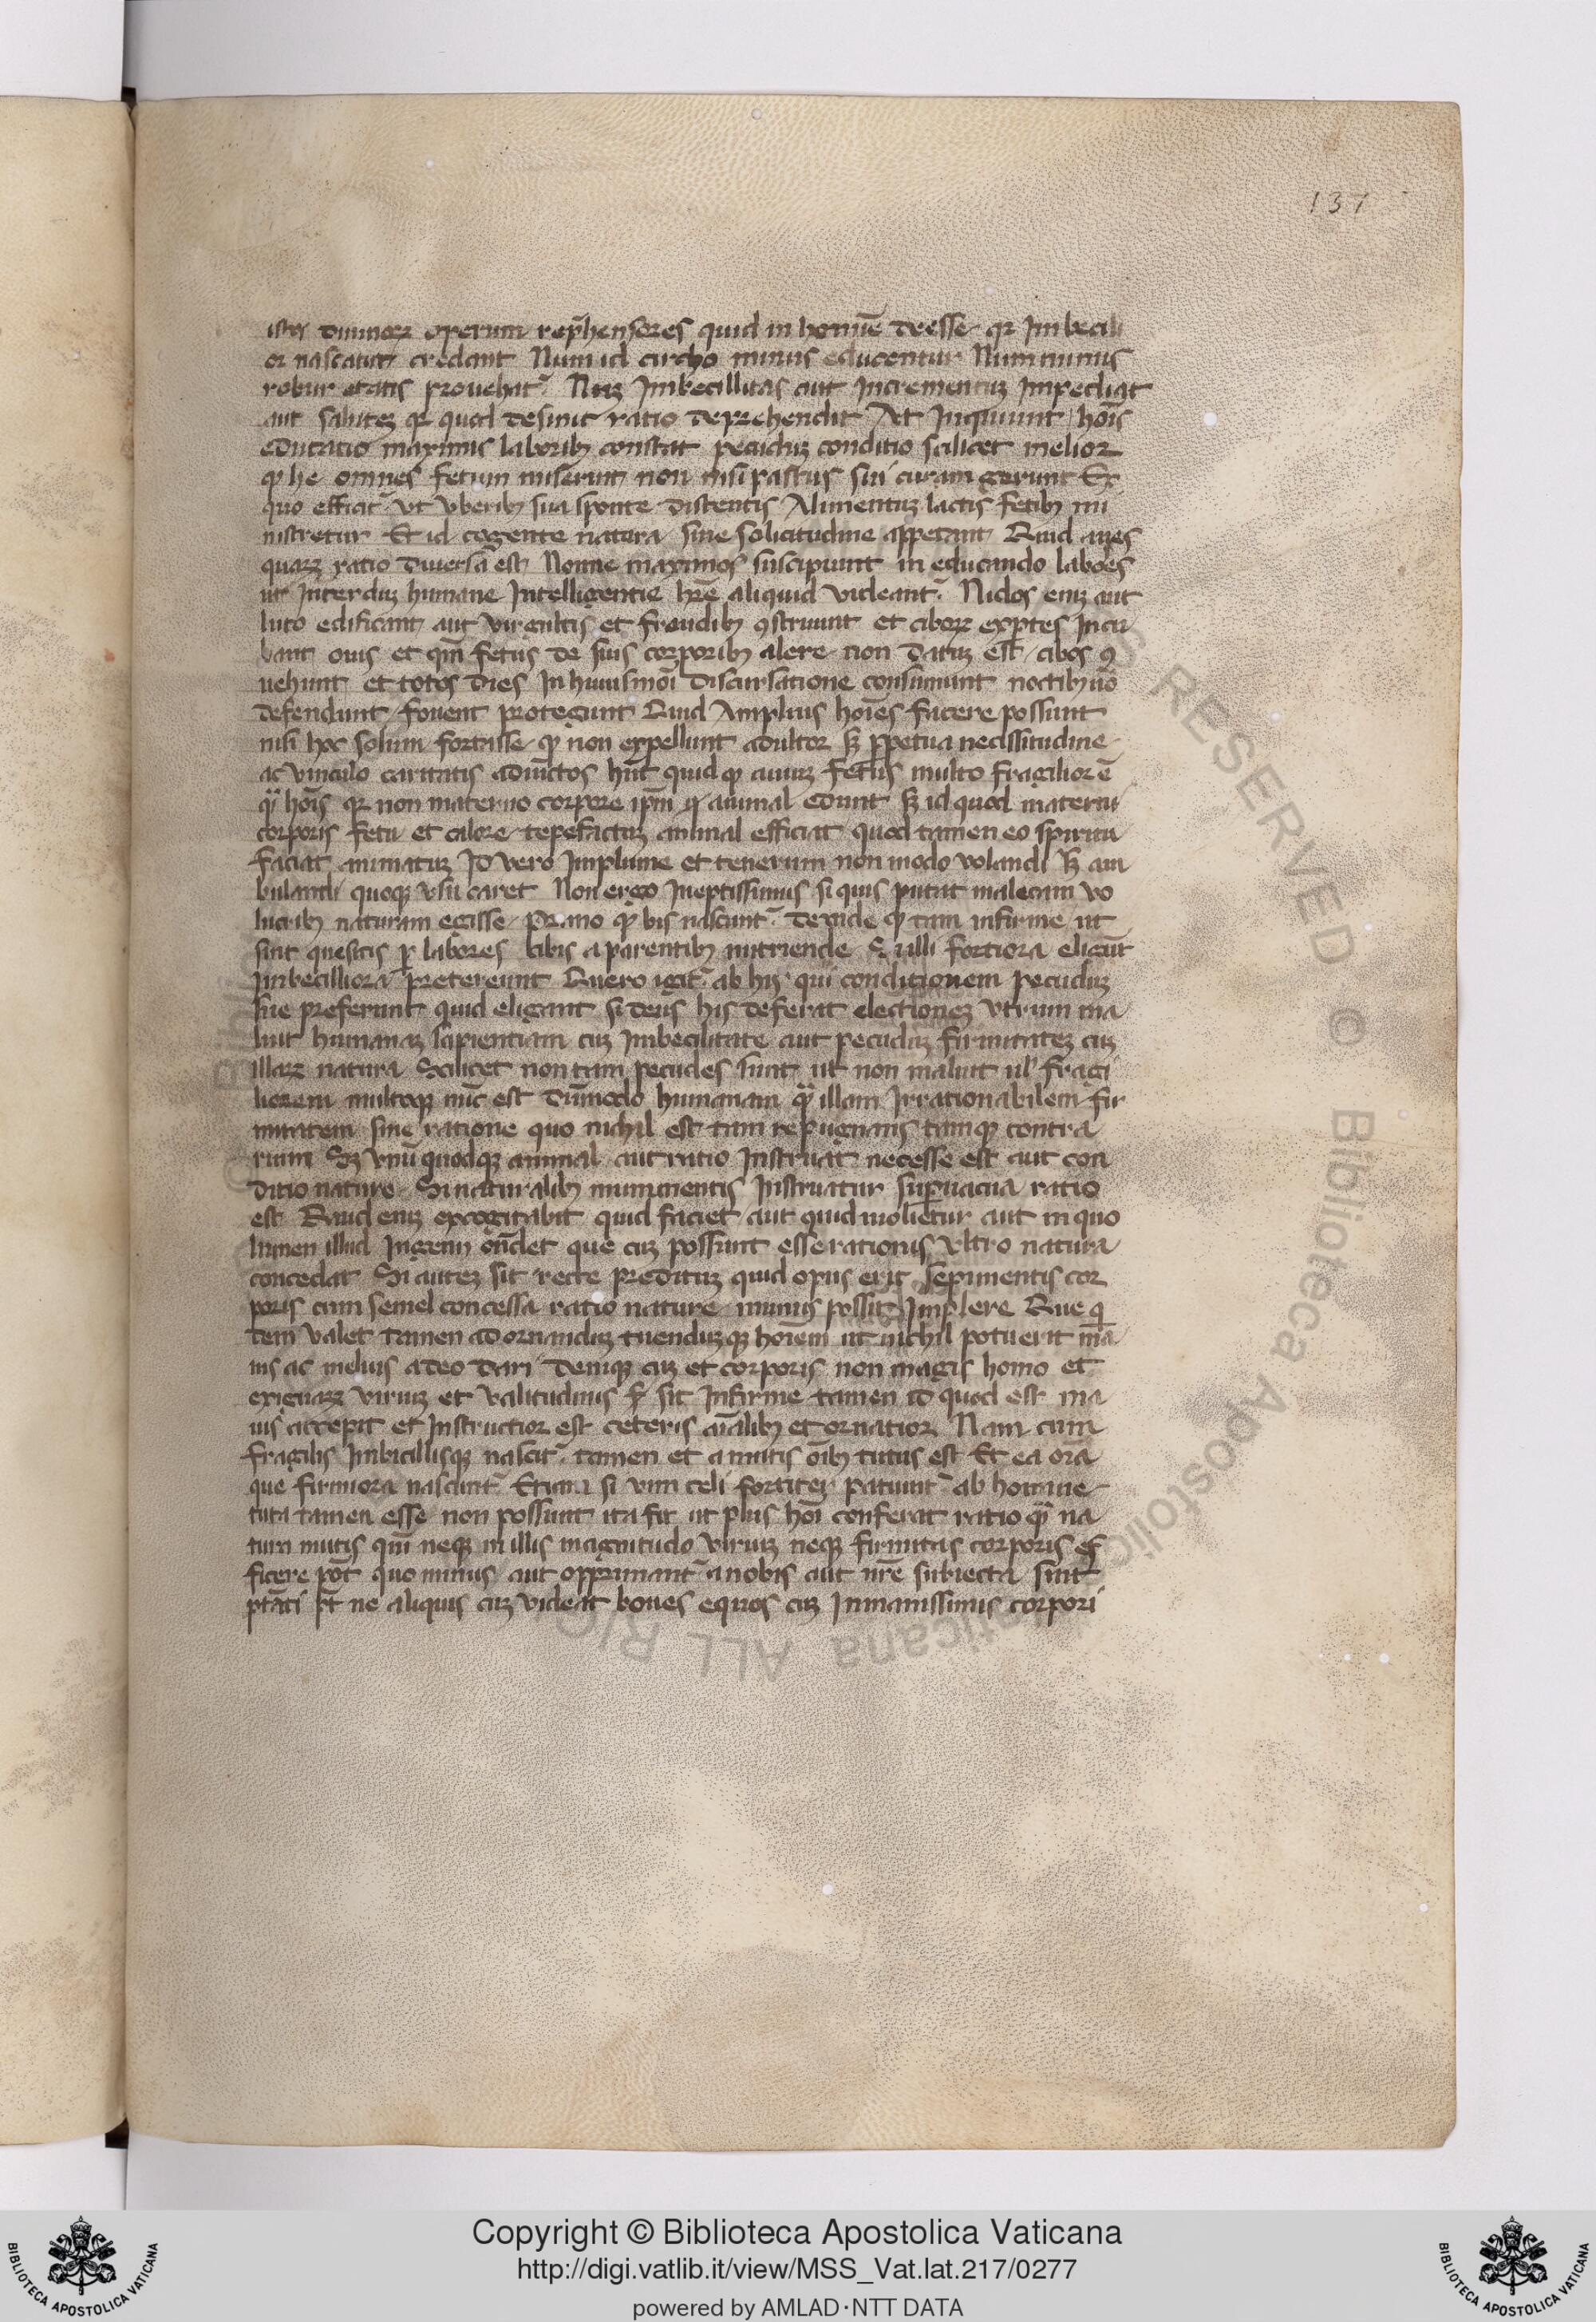 137
istos diuinoꝝ operum rep̄hensores quid in homīe deesse qꝛ Imbecilli
or nascatur credant Num id circho minus educentur Num minus
robur etatis prouehat᷑ Nuꝫ Imbecillitas aut Incrementuꝫ Impediat
aut saluteꝫ qꝛ quod desinit ratio deprehendit At Inquiunt hoīs
educatio maximis laboribꝫ constat pecuduꝫ conditio scilicet melior
ꝙ he omnes fetum miserunt non nisi pastus sui curam gerunt Ex
quo efficit᷑ vt vberibꝫ sua sponte distentis Alimentuꝫ lactis fetibꝫ mi
nistretur Et id cogente natura sine solicitudine appetant Quid aues
quaꝝ ratio diuersa est Nonne maximos suscipiunt in educando laboēs
ut Interduꝫ humane Intelligentie hr̄e aliquid videant᷑ Nidos eniꝫ aut
luto edificant aut virgultis et frondibꝫ ꝯstruunt et ciboꝝ exp̱tes Incu
bant ouis et qm̄ fetus de suis corporibꝫ alere non datuꝫ est cibos ꝯ
uehunt et totos dies In huiusmōi discursatione consumunt noctibꝫ uō
defendunt fouent protegunt Quid Amplius hoīes facere possunt
nisi hoc solum fortasse ꝙ non expellunt adultos sꝫ ꝑpetua necissitudine
ac vinculo caritatis adiūctos hn̄t quid ꝙ auiuꝫ fetus multo fragiliorē
qͣꝫ hoīs qꝛ non materno corpore ip̄m animal edunt sꝫ id quod materni
corporis fetu et calore tepefactuꝫ animal efficiat quod tamen eo spiritu
faciat animatuꝫ Id vero Implume et tenerum non modo volandi sꝫ am
bulandi quoqꝫ vsu caret Non ergo Ineptissimus si quis putat malecum vo
lucribꝫ naturam egisse primo ꝙ bis nascunt᷑ deinde ꝙ tam infirme ut
sint quesitis ꝑ labores cibis a parentibꝫ nutriende Sꝫ illi fortiora eligūt
Imbecilliora pretereunt Quero igit᷑ ab his qui conditionem pecuduꝫ
sue preferunt quid eligant si deus his deferat electioneꝫ vtrum ma
lint humanaꝫ sapientiam cuꝫ Imbecilitate aut pecuduꝫ firmitateꝫ cuꝫ
illaꝝ natura Scilicet non tam pecudes sunt ut non malint ul̓ fragi
liorem multoqꝫ nūc est dūmodo humanam qͣꝫ illam Irrationabilem fir
mitatem sine ratione quo nichil est tam repugnans tamqꝫ contra
rium Sꝫ vnū quodqꝫ animal aut ratio Instruat necesse est aut con
ditio nature Si naturalibꝫ munimentis Instruatur suꝑuacua ratio
est Quid eniꝫ excogitabit quid faciet aut quid molietur aut in quo
lumen illud Ingenii on̄det que cuꝫ possunt esse rationis vltro natura
concedat Si auteꝫ sit recte preditꝫ quid opus erit sepimentis cor
poris cum semel concessa ratio nature munus possit Implere Que q̇
tem valet tamen ad ornanduꝫ tuenduꝫqꝫ hoīem ut nichil potuerit ma
ius ac melius a deo dari deniqꝫ cuꝫ et corporis non magis homo et
exiguaꝝ viriuꝫ et valitudinis sit Infirme tamen id quod est ma
ius accepit et Instructior est ceteris aīalibꝫ et ornatior Nam cum
fragilis Imbicillisqꝫ nascit᷑ tamen et a mutis oībꝫ tutus est Et ea oīa
que firmiora nascunt᷑ Etiam si vim celi fortiter patiunt᷑ ab homine
tuta tamen esse non possunt ita fit ut plus hōi conferat ratio qͣꝫ na
tura mutis qm̄ neqꝫ in illis magnitudo viriuꝫ neqꝫ firmitas corporis ef
ficere pōt quo minus aut opprimant᷑ a nobis aut nr̄e subiecta sint
ptāti pt̄ ne aliquis cuꝫ videat boues equos cuꝫ Inmanissimis corpori
ALL RIGHTS RESERVED © Biblioteca Apostolica Vaticana
Copyright © Biblioteca Apostolica Vaticana
http://digi.vatlib.it/view/MSS_Vat.lat.217/0277
powered by AMLAD·NTT DATA
BIBLIOTECA APOSTOLICA VATICANA
BIBLIOTECA APOSTOLICA VATICANA